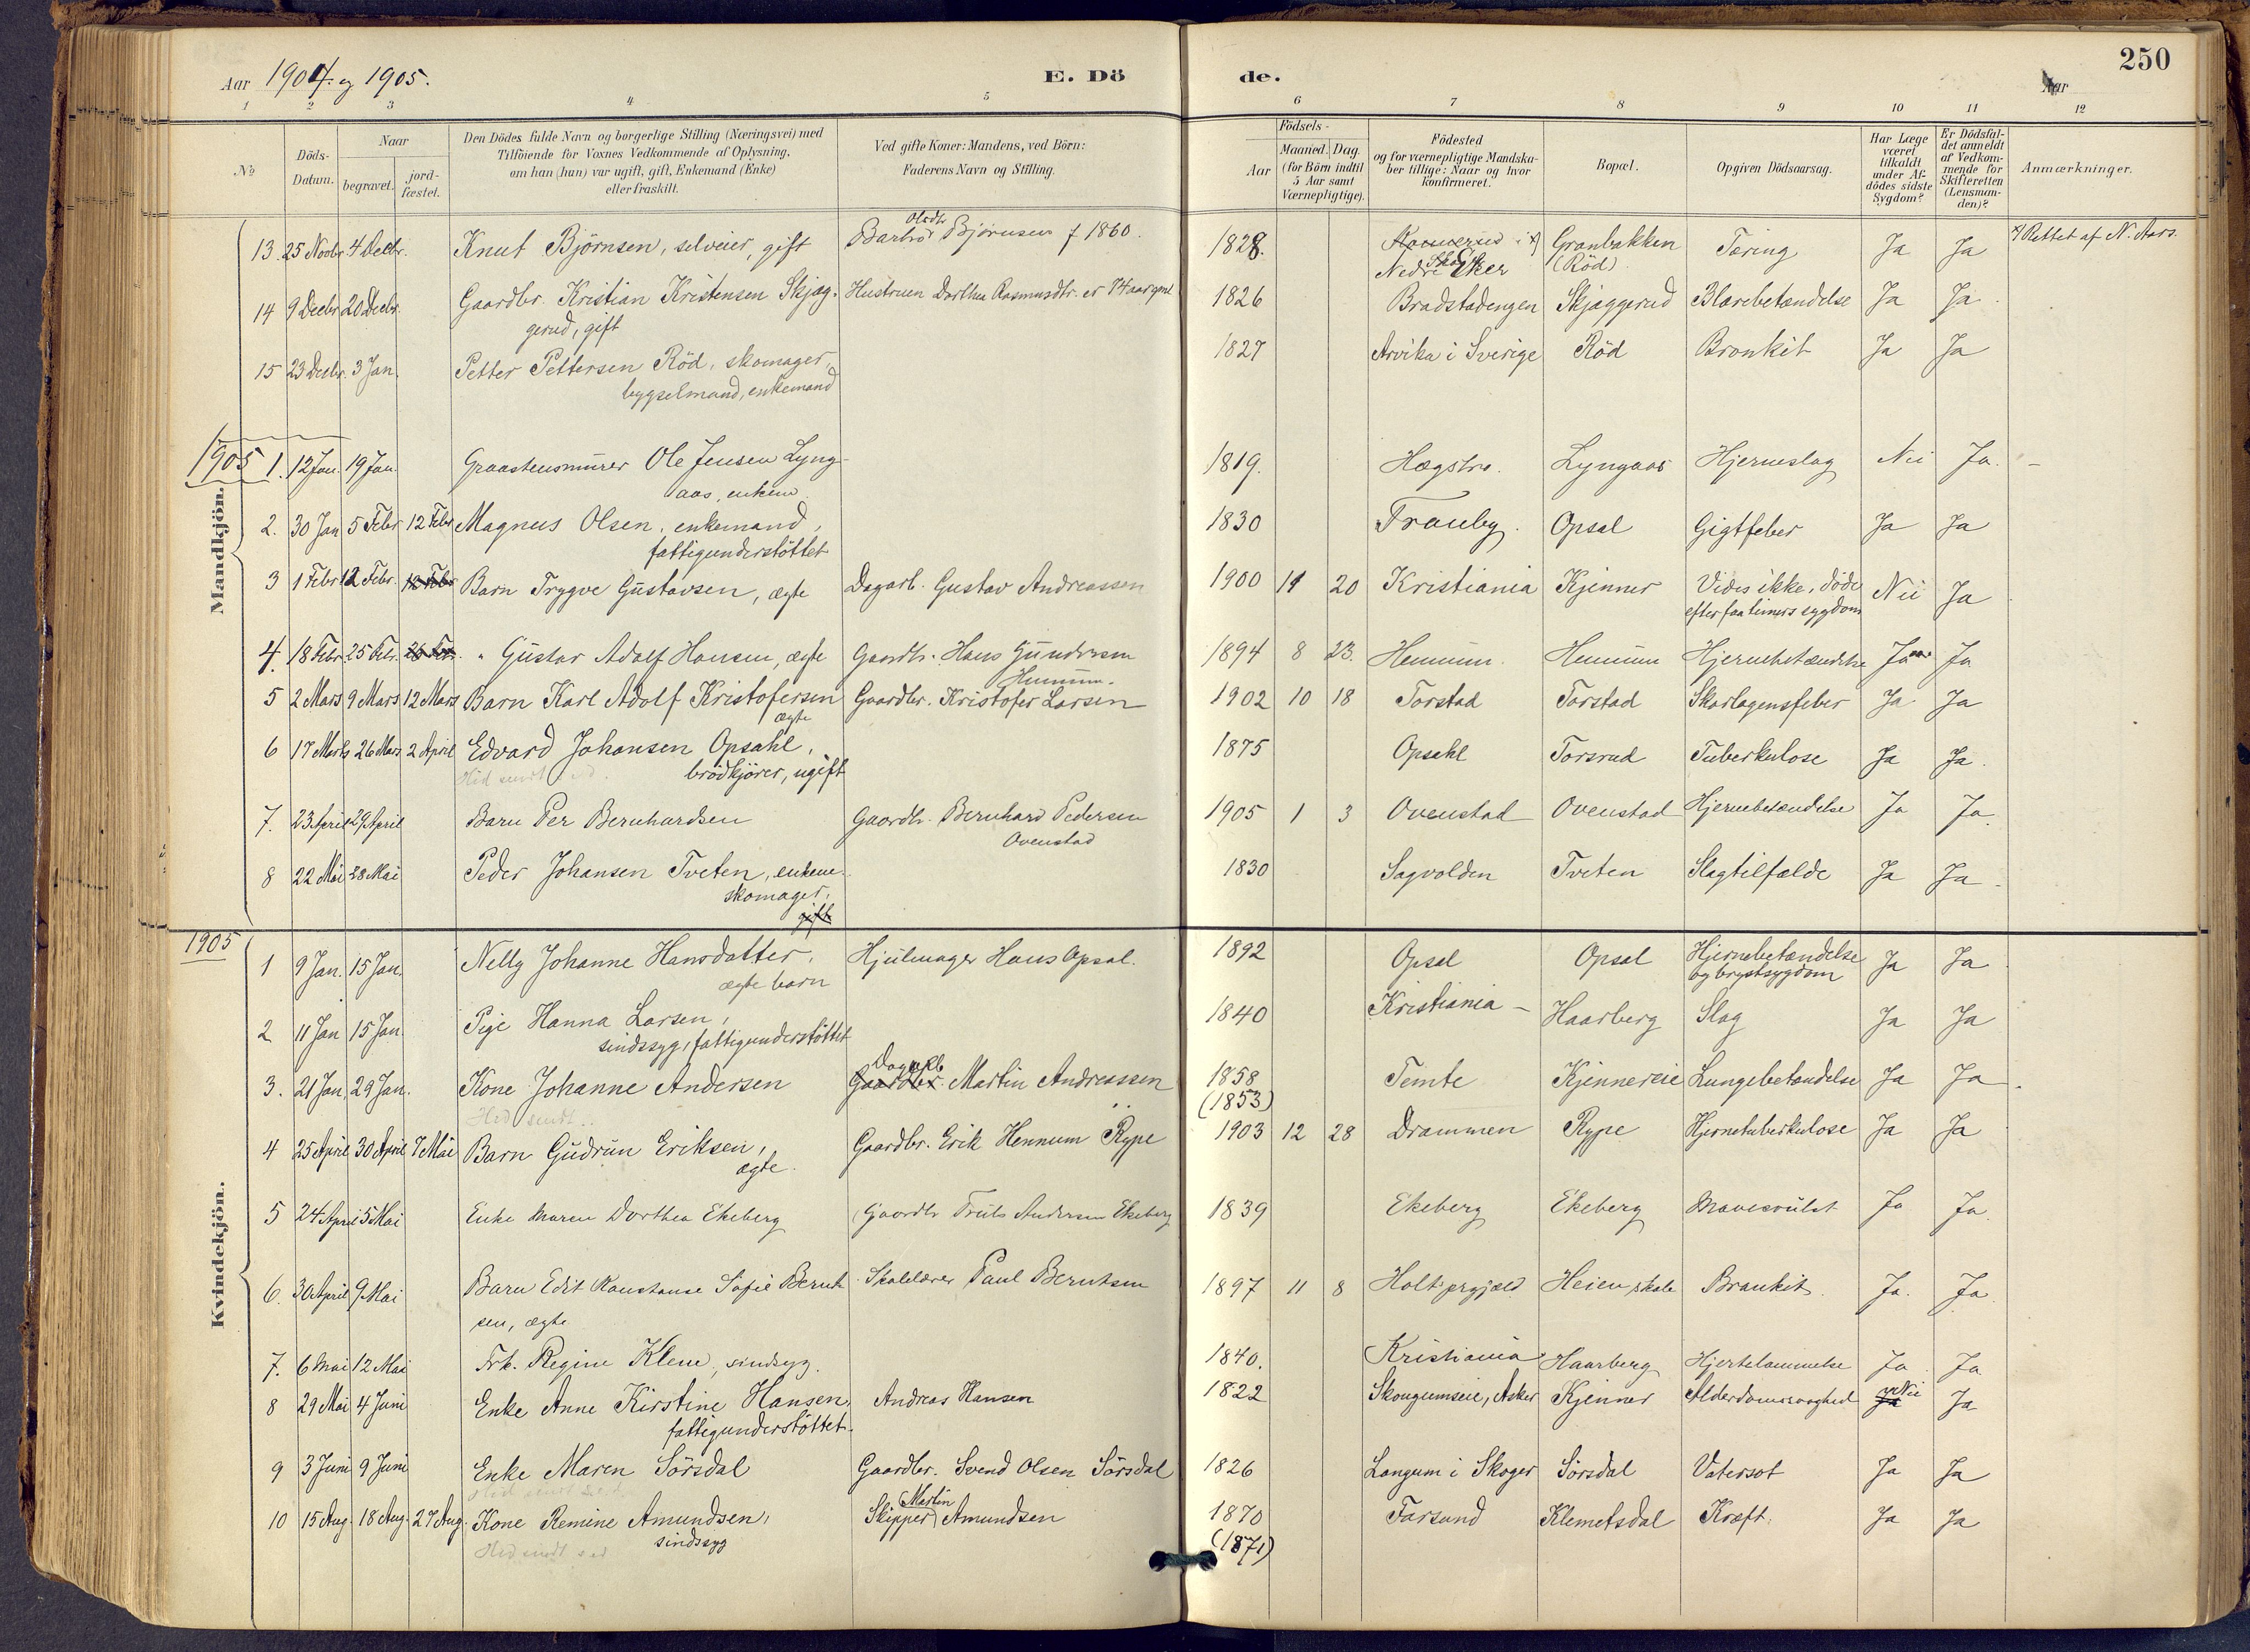 Aar 1904. og 1905.
E. Dö
de.
Aar
250
1 2 3 4 5 6 7 8 9 10 11 12
No
Döds-Datum.
Naar
begravet.
jord-fæstet.
Den Dödes fulde Navn og borgerlige Stilling (Næringsvei) med
Tilföiende for Voxnes Vedkommende af Oplysning,
om han (hun) var ugift, gift, Enkemand (Enke)
eller fraskilt.
Ved gifte Koner: Mandens, ved Börn:
Faderens Navn og Stilling.
Födsels-
Aar
Maaned. Dag.
(for Börn indtil 5 Aar samt Værnepligtige).
Födested
og for værnepligtige Mandska-
ber tillige: Naar og hvor
konfirmeret.
Bopæl.
Opgiven Dödsaarsag.
Har Læge været tilkaldt under Af-dödes sidste Sygdom?
Er Dödsfal-det anmeldt af Vedkom-mende for Skifteretten (Lensman-den)?
Anmærkninger.
Mandkjön.
13. 25 Novbr. 4 Decbr. Knut Björnsen, selveier, gift Barbro Olsdtr Bjørnsen f 1860. 1828. Nedre Eker Granbakken (Röd) Tæring Ja Ja x) Rettet af N. Aars.
14 9 Decbr 20 Decbr. Gaardbr. Kristian Kristensen Skjæg- Hustruen Dorthea Rasmusdtr. er 74 aar gml 1826 Bradstadengen Skjæggerud Blærebetændelse Ja Ja
gerud, gift
15 23 Decbr. 3 Jan. Petter Pettersen Röd, skomager, 1827 Arvika i Sverige Röd Bronkit Ja Ja
bygselmand, enkemand
1905 1. 12 Jan. 19 Jan. Graastensmurer Ole Jensen Lyng- 1819. Hægstre. Lyngaas Hjerneslag Nei Ja.
aas, enkem
2. 30 Jan 5 Febr 12 Febr Magnus Olsen, enkemand, 1830 Tranby. Opsal Gigtfeber Ja Ja
fattigunderstöttet
3 1 Febr 12 Febr. 12 Febr Barn Trygve Gustavsen, ægte Dagarb. Gustav Andreassen 1900 11 20 Kristiania Kjenner Vides ikke, döde Nei Ja
efter faa timers sygdom
4. 18 Febr 25 Febr. " Gustav Adolf Hansen, ægte Gaardbr. Hans Gundersen 1894 8 23. Hennum. Hennum Hjernebetændelse Ja Ja
Hennum.
5 2 Mars 9 Mars 12 Mars Barn Karl Adolf Kristofersen Gaardbr. Kristofer Larsen 1902 10 18 Torstad Torstad Skarlagensfeber Ja Ja
ægte
6 17 Marts 26 Mars 2 April Edvard Johansen Opsahl, 1875 Opsahl Torsrud Tuberkulose Ja Ja.
brödkjörer, ugift
7. 23 April 29 April Barn Per Bernhardsen Gaardbr. Bernhard Pedersen 1905 1 3 Ovenstad Ovenstad Hjernebetændelse Ja Ja.
Ovenstad
8 22 Mai 28 Mai Peder Johansen Tveten, enkem. 1830 Sagvolden Tveten Slagtilfælde Ja Ja
skomager,
gift
1905
Kvindekjön.
1 9 Jan. 15 Jan. Nelly Johanne Hansdatter, Hjulmager Hans Opsal. 1892 Opsal Opsal Hjernebetændelse Ja Ja
ægte barn og brystsygdom
2 11 Jan 15 Jan Pige Hanna Larsen, 1840 Kristiania Haarberg Slag Ja Ja
sindssyg, fattigunderstöttet
3. 21 Jan. 29 Jan. Kone Johanne Andersen Gaardbr. Dagarb Martin Andreassen 1858 (1853) Temte Kjennereie Lungebetændelse Ja Ja
4 25 April 30 April 7 Mai Barn Gudrun Eriksen, Gaardbr. Erik Hennum Rype 1903 12 28 Drammen Rype Hjernetuberkulose Ja Ja
ægte.
5 24 April 5 Mai Enke Maren Dorthea Ekeberg Gaardbr Truls Andersen Ekeberg 1839 Ekeberg Ekeberg Mavesvulst Ja Ja.
6. 30 April 9 Mai Barn Edit Konstanse Sofie Bernt- Skolelærer Paul Berntsen 1897 11 8 Holt prgjæld Heien skole Bronkit. Ja. Ja
sen, ægte
7. 6 Mai 12 Mai Frk. Regine Klem, sindsyg. 1840. Kristiania Haarberg Hjertelammelse Ja Ja
8 29 Mai 4 Juni Enke Anne Kirstine Hansen, Andreas Hansen 1822 Skougumseie, Asker Kjenner Alderdomssvaghed Ja Nei Ja
fattigunderstöttet.
9 3 Juni 9 Juni Enke Maren Sörsdal Gaardbr. Svend Olsen Sörsdal 1826 Langum i Skoger Sörsdal Vatersot Ja Ja
10 15 Aug. 18 Aug. 27 Aug. Kone Remine Amundsen, Skipper Martin Amundsen 1870 (1871) Farsund Klemetsdal Kræft. Ja Ja
sindssyg